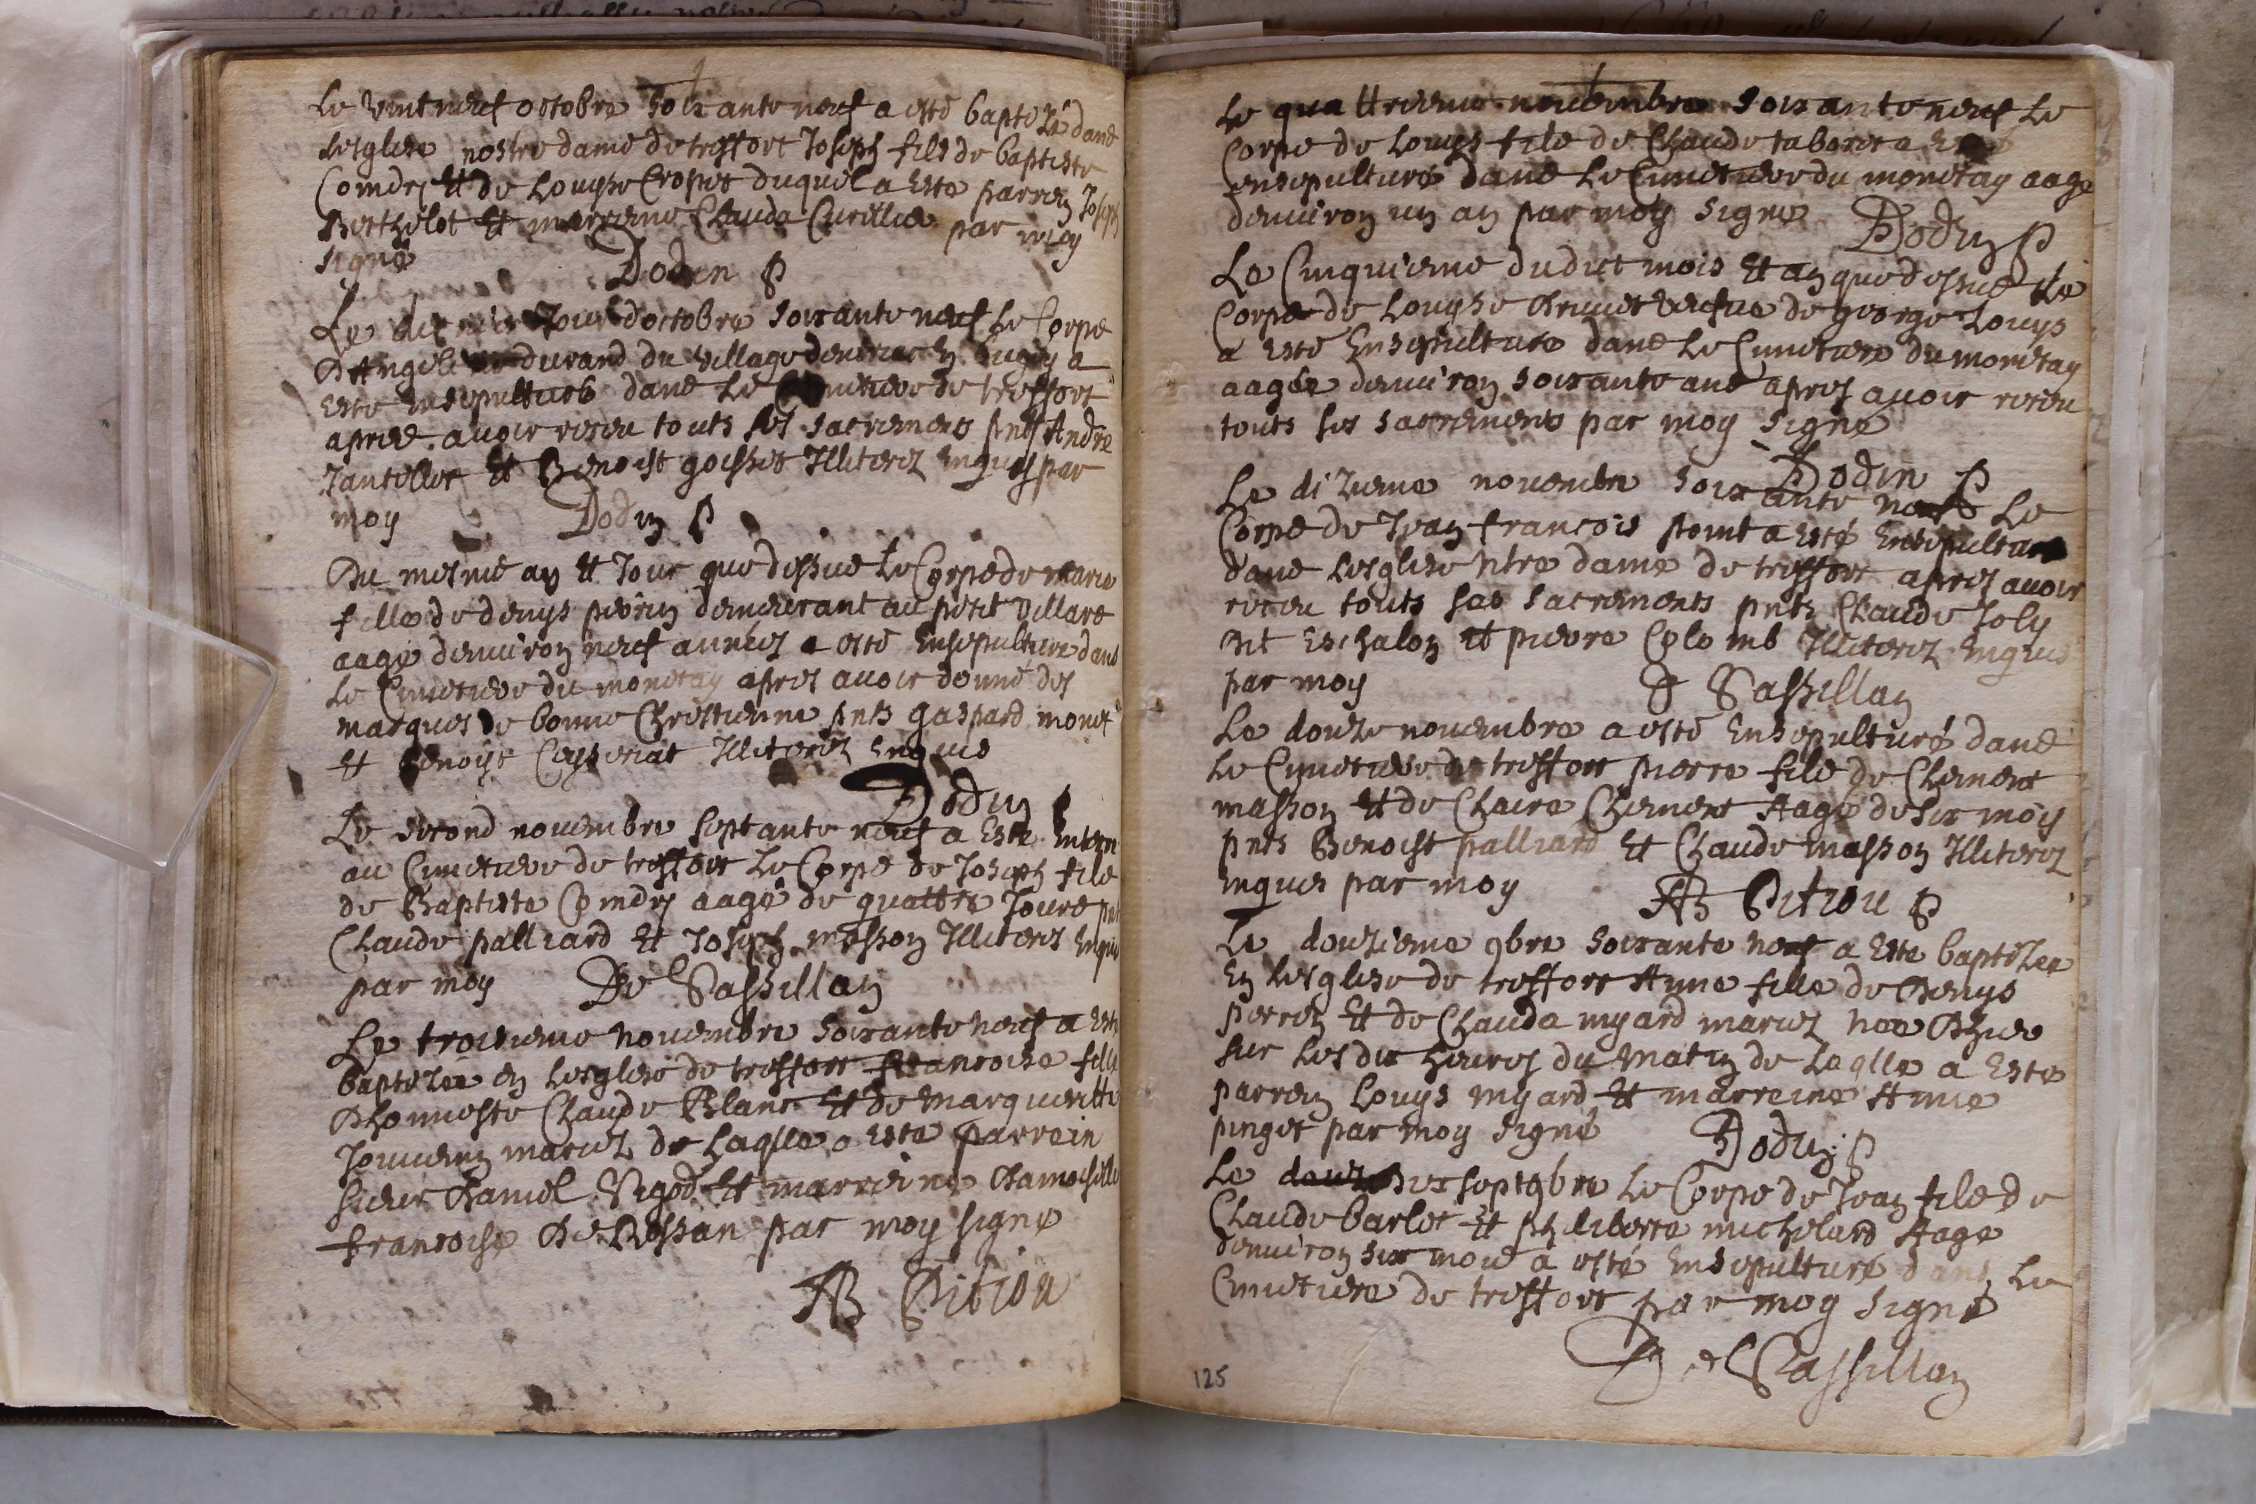 Le vint neuf octobre soixante neuf a esté baptizé dans
lesglise nostre dame de treffort Joseph fils de baptiste
Comdry et de Louyse Cropet duquel a este parrein Joseph
Berthelot et marreine Claude par moy
signé Dodin P
Le Jour doctobre soixante neuf le Corps
durand du village en bugey a
este ensepulturé dans le Cimetiere de treffort
apres avoir receu touts ses sacremens pnts André
Jantellet et Benoist goysset Illiterez enquis par
moy Dodin P
Du mesme an et Jour que dessus le Corps de marie
fille de denys pierrin demeurant au petit villars
aagé denviron neuf années a esté ensepulturé dans
le Cimetiere du monetay apres avoir donné des
marques de bonne Chrestienne pnts gaspard monet
et benoyst Illiterez enquis
Dodin P
Le second novembre septante neuf a este enterré
au Cimetiere de treffort le Corps de Joseph fils
de Baptiste Comdry aagé de quattre Jours pnt
Claude palliard et Joseph masson Illiterez enquis
par moy De Vassillan
Le troisieme novembre soixante neuf a esté
baptizée en lesglise de treffort francoise fille
Dhonneste Claude Blanc et de marguerite
Jouvenin mariez de laqlle a este parrein
sieur Daniel Vigod et marreine Damoiselle
francoise De Rossan par moy signé
AB Pition
Le quattrieme novembre soixante neuf le
Corps de Louys fils de Claude taboret a esté
ensepulturé dans le Cimetiere du monetay aagé
denviron un an par moy signé Dodin P
Le Cinquieme dudict mois et an que dessus le
Corps de Louyse Druet vefue de george Louys
a esté Ensepulturé dans le Cimetiere du monetay
aagée denviron soixante ans apres avoir receu
touts ses sacremens par moy signé
Dodin P
Le dizieme novembre soixante neuf le
Corps de Jean francois point a esté Ensepulturé
dans lesglise ntre dame de treffort apres avoir
receu touts ses sacrements pnts Claude Joly
dit Eschalon et pierre Colomb Illiterez enquis
par moy D Vassillan
Le douze novembre a esté Ensepulturé dans
le Cymetiere de treffort pierre fils de Clement
masson et de Claire Clement Aagé de six mois
pnts Benoist palliard et Claude masson Illiterez
enquis par moy AB Pition P
Le douzieme 9bre soixante neuf a este baptizée
En lesglise de treffort Anne fille de Denys
perrin et de Clauda myard mariez nee Dhier
sur les dix heures du matin de laqlle a este
parrein Louys myard et marreine Anne
pinget par moy signé Dodin P
Le dix sept 9bre le Corps de Jean fils de
Claude barlet et philiberte michelard Aagé
denviron six mois a esté ensepulturé dans le
Cimetiere de treffort par moy signé
De Vassillan
125